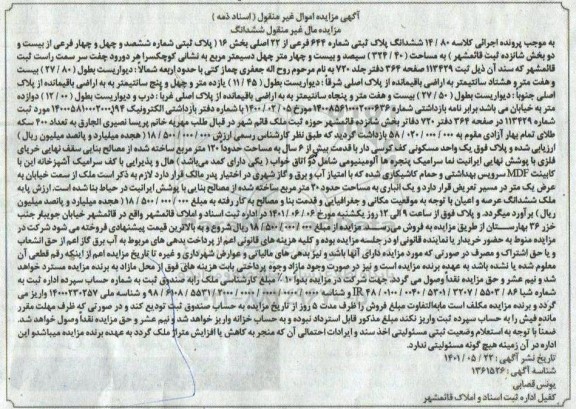 آگهی مزایده اموال غیر منقول (اسناد ذمه)
مزایده مال غیر منقول ششدانگ
به موجب پرونده اجرائی کلاسه ۸۰ / ۱۴ ششدانگ پلاک ثبتی شماره ۶۴۴ فرعی از ۲۲ اصلی بخش ۱۶ (پلاک ثبتی شماره ششصد و چهل و چهار فرعی از بیست و
دو بخش شانزده ثبت قائمشهر) به مساحت (۴۰ / ۳۲۴) سیصد و بیست و چهار متر چهل دسیمتر مربع به نشانی کوچکسرا هر دورود جفت سر سمت راست ثبت
قائمشهر که سند آن ذیل ثبت ۱۱۳۴۲۹ در صفحه ۳۶۴ دفتر جلد ۷۲۰ به نام مرحوم روح اله جعفری چماز کتی با حدود اربعه شمالا: دیواریست بطول (۸۰ / ۲۷) بیست
و هفت متر و هشتاد سانتیمتر به به اراضی باقیمانده از پلاک اصلی شرقا: دیواریست بطول (۴۵ / ۱۱) یازده متر و چهل و پنج سانتیمتر به به اراضی باقیمانده از پلاک
اصلی جنوبا: دیواریست بطول (۵۰ / ۲۷) بیست و هفت متر و پنجاه سانتیمتر به به اراضی باقیمانده از پلاک اصلی غربا: درب و دیواریست بطول (۰۰ / ۱۲) دوازده
متر به خیابان می باشد، برابر نامه بازداشتی شماره مورخ ۰۲ / ۰۳ / ۱۴۰۰ با شماره دفتر بازداشتی الکترونیک ثبت شماره
۱۱۳۴۲۹ در صفحه ۳۶۴ دفتر ۷۲۰ دفاتر بخش شانزده قائمشهر حوزه ثبت ملک قائم شهر در قبال طلب مهریه خانم پریسا نصیری الجارق به تعداد ۴۰۰ سکه
طلای تمام بهار آزادی مقوم به ۰۰۰ / ۰۰۰ / ۰۲۰ / ۵۸ بازداشت گردید که طبق نظر کارشناس رسمی ارزش ۰۰۰ / ۰۰۰ / ۵۰۰ / ۱۸ (هجده میلیارد و پانصد میلیون ریال)
ارزیابی شده و پلاک فوق یک واحد مسکونی کف کرسی دار با قدمت بیش از ۶ سال به مساحت حدودا ۱۲۰ متر مربع ساخته شده از مصالح بنایی سقف نهایی خرپای
فلزی با پوشش نهایی ایرانیت نما سرامیک پنجره ها آلومینیومی شامل دو اتاق خواب (یکی دارای کمد می باشد) هال و پذیرایی با کف سرامیک آشپزخانه این با
کابینت MDF سرویس بهداشتی و حمام کاشیکاری شده که با امتیاز آب و برق و گاز شهری در اختیار پدر مالک قرار دارد لازم به ذکر است ملک از سمت خیابان به
عرض یک متر در مسیر تعریض قرار دارد و یک انباری به مساحت حدود ۲۰ متر مربع ساخته شده از مصالح بنایی با پوشش ایرانیت در حیاط بنا شده است. ارزش پایه
ملک ششدانگ عرصه و اعیان با توجه به موقعیت مکانی و جغرافیایی و قدمت بنا و مصالح به کار رفته به مبلغ ۰۰۰ / ۰۰۰ / ۵۰۰ / ۱۸ (هجده میلیارد و پانصد میلیون
ریال) برآورد میگردد. و پلاک فوق از ساعت ۹ الی ۱۲ روز یکشنبه مورخ ۰۶ / ۰۶ / ۱۴۰۱ در اداره ثبت اسناد و املاک قائمشهر واقع در قائمشهر خیابان جویبار جنب
خزر ۳۶ بهارستان از طریق مزایده به فروش می رسد. مزایده از مبلغ ۰۰۰ / ۰۰۰ / ۵۰۰ / ۱۸ ریال شروع و به بالاترین قیمت پیشنهادی فروخته می شود شرکت در
مزایده منوط به حضور خریدار یا نماینده قانونی او در جلسه مزایده بوده و کلیه هزینه های قانونی اعم از پرداخت بدهی های مربوط به آب برق گاز اعم از حق انشعاب
و یا حق اشتراک و مصرف در صورتی که مورد مزایده دارای آنها باشد و نیز بدهی های مالیاتی و عوارض شهرداری و غیره تا تاریخ مزایده اعم از اینکه رقم قطعی آن
معلوم شده یا نشده باشد به عهده برنده مزایده است و نیز در صورت وجود مازاد وجوه پرداختی بابت هزینه های فوق از محل مازاد به برنده مزایده مسترد خواهد
شد و نیم عشر و حق مزایده نقدا وصول می گردد. جهت شرکت در مزایده بدوا ۱۰٪ مبلغ کارشناسی ملک رابه صندوق ثبت به شماره حساب سپرده اداره ثبت به
شماره شبا واریز می
گردد و برنده مزایده مکلف است مابه التفاوت مبلغ فروش را ظرف مدت ۵ روز از تاریخ مزایده به حساب صندوق ثبت تودیع کند و در صورتی که ظرف مهلت مقرر
مانده فیش را به حساب سپرده ثبت واریز نکند مبلغ مذکور قابل استرداد نبوده و به حساب خزانه واریز خواهد شد و نیم عشر و حق مزایده نقدا وصول خواهد شد.
ضمنا با توجه به استعلام وضعیت ثبتی مسئولیتی اخذ سند و ایرادات احتمالی آن که منجر به کاهش یا افزایش متراژ ملک گردد به عهده برنده مزایده میباشد و این
اداره در آن زمینه هیچ گونه مسئولیتی ندارد.
تاریخ نشر آگهی: ۲۲ / ۰۵ / ۱۴۰۱
شناسه آگهی: ۱۳۶۱۵۲۶
یونس قصابی
کفیل اداره ثبت اسناد و املاک قائمشهر